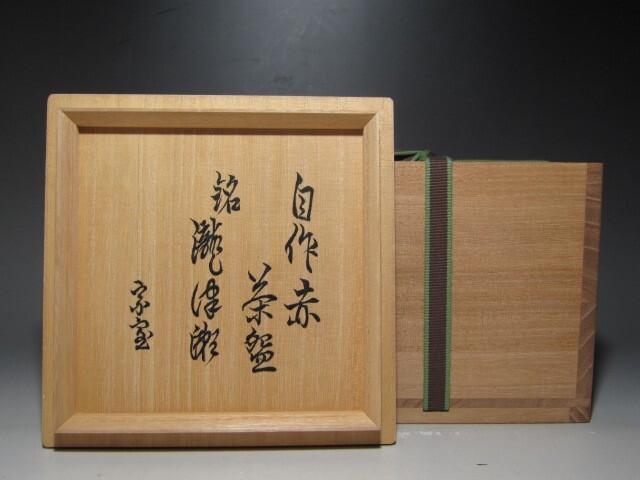 自作赤
茶盌
銘
瀧津瀬
宗室